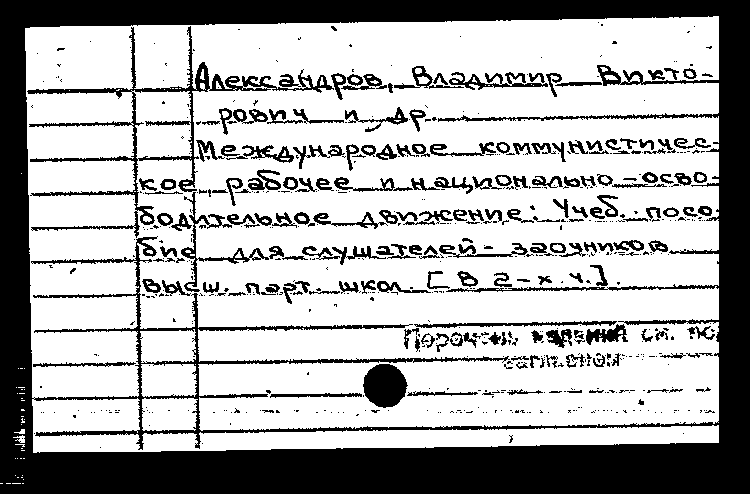 Александров, Владимир Викто-
рович и др
Международное коммунистичес-
кое, рабочее и национально-осво-
бодительное движение: Учеб. посо-
бие для слушателей-заочников
высш. парт. школ. [В 2-х ч.].
Перечень издания см. под
заглавием